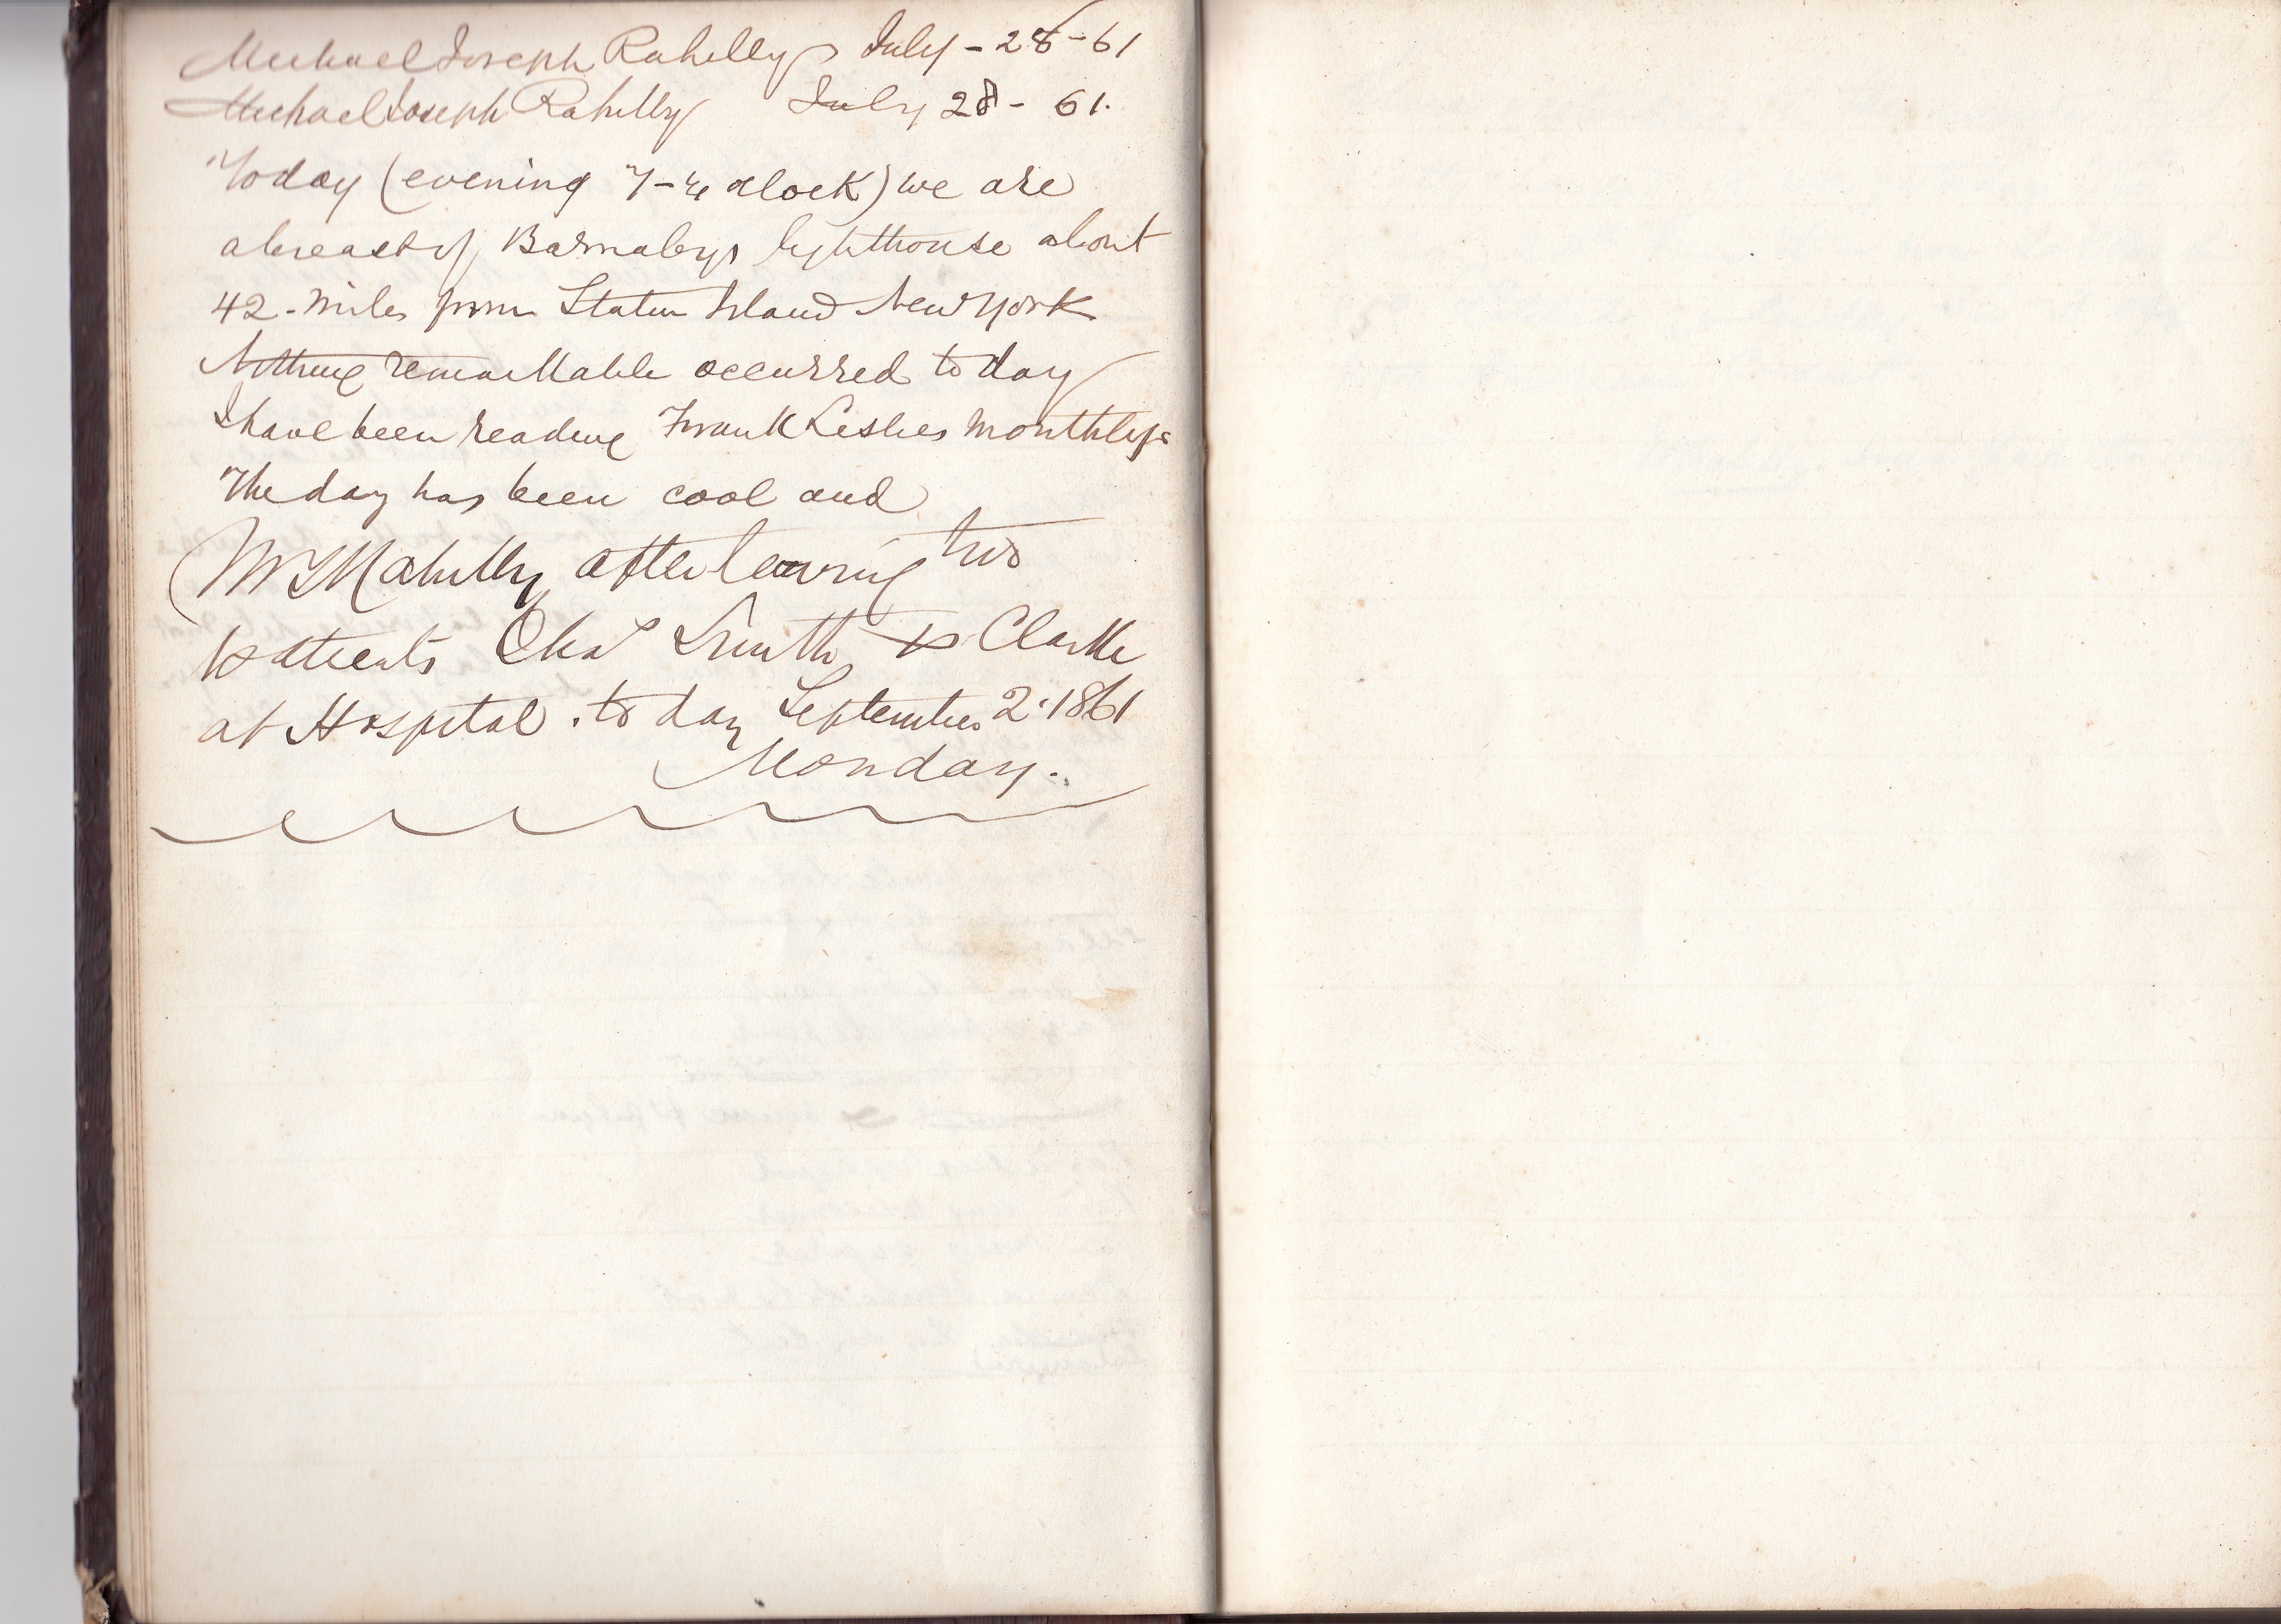 Michael Joseph Rahilly July - 28 - 61
Michael Joseph Rahilly July 28 - 61.
Today (evening 7 - oclock) we are
abreast of Barnabys lighthouse about
42 - miles from Staten Island New York
Nothing remarkable occurred to day
I have been reading Frank Leslies monthlys
The day has been cool and
Rahilly after leaving two
patients Chas Smith & Clarke
at Hospital . to day September 2 . 1861
Monday .